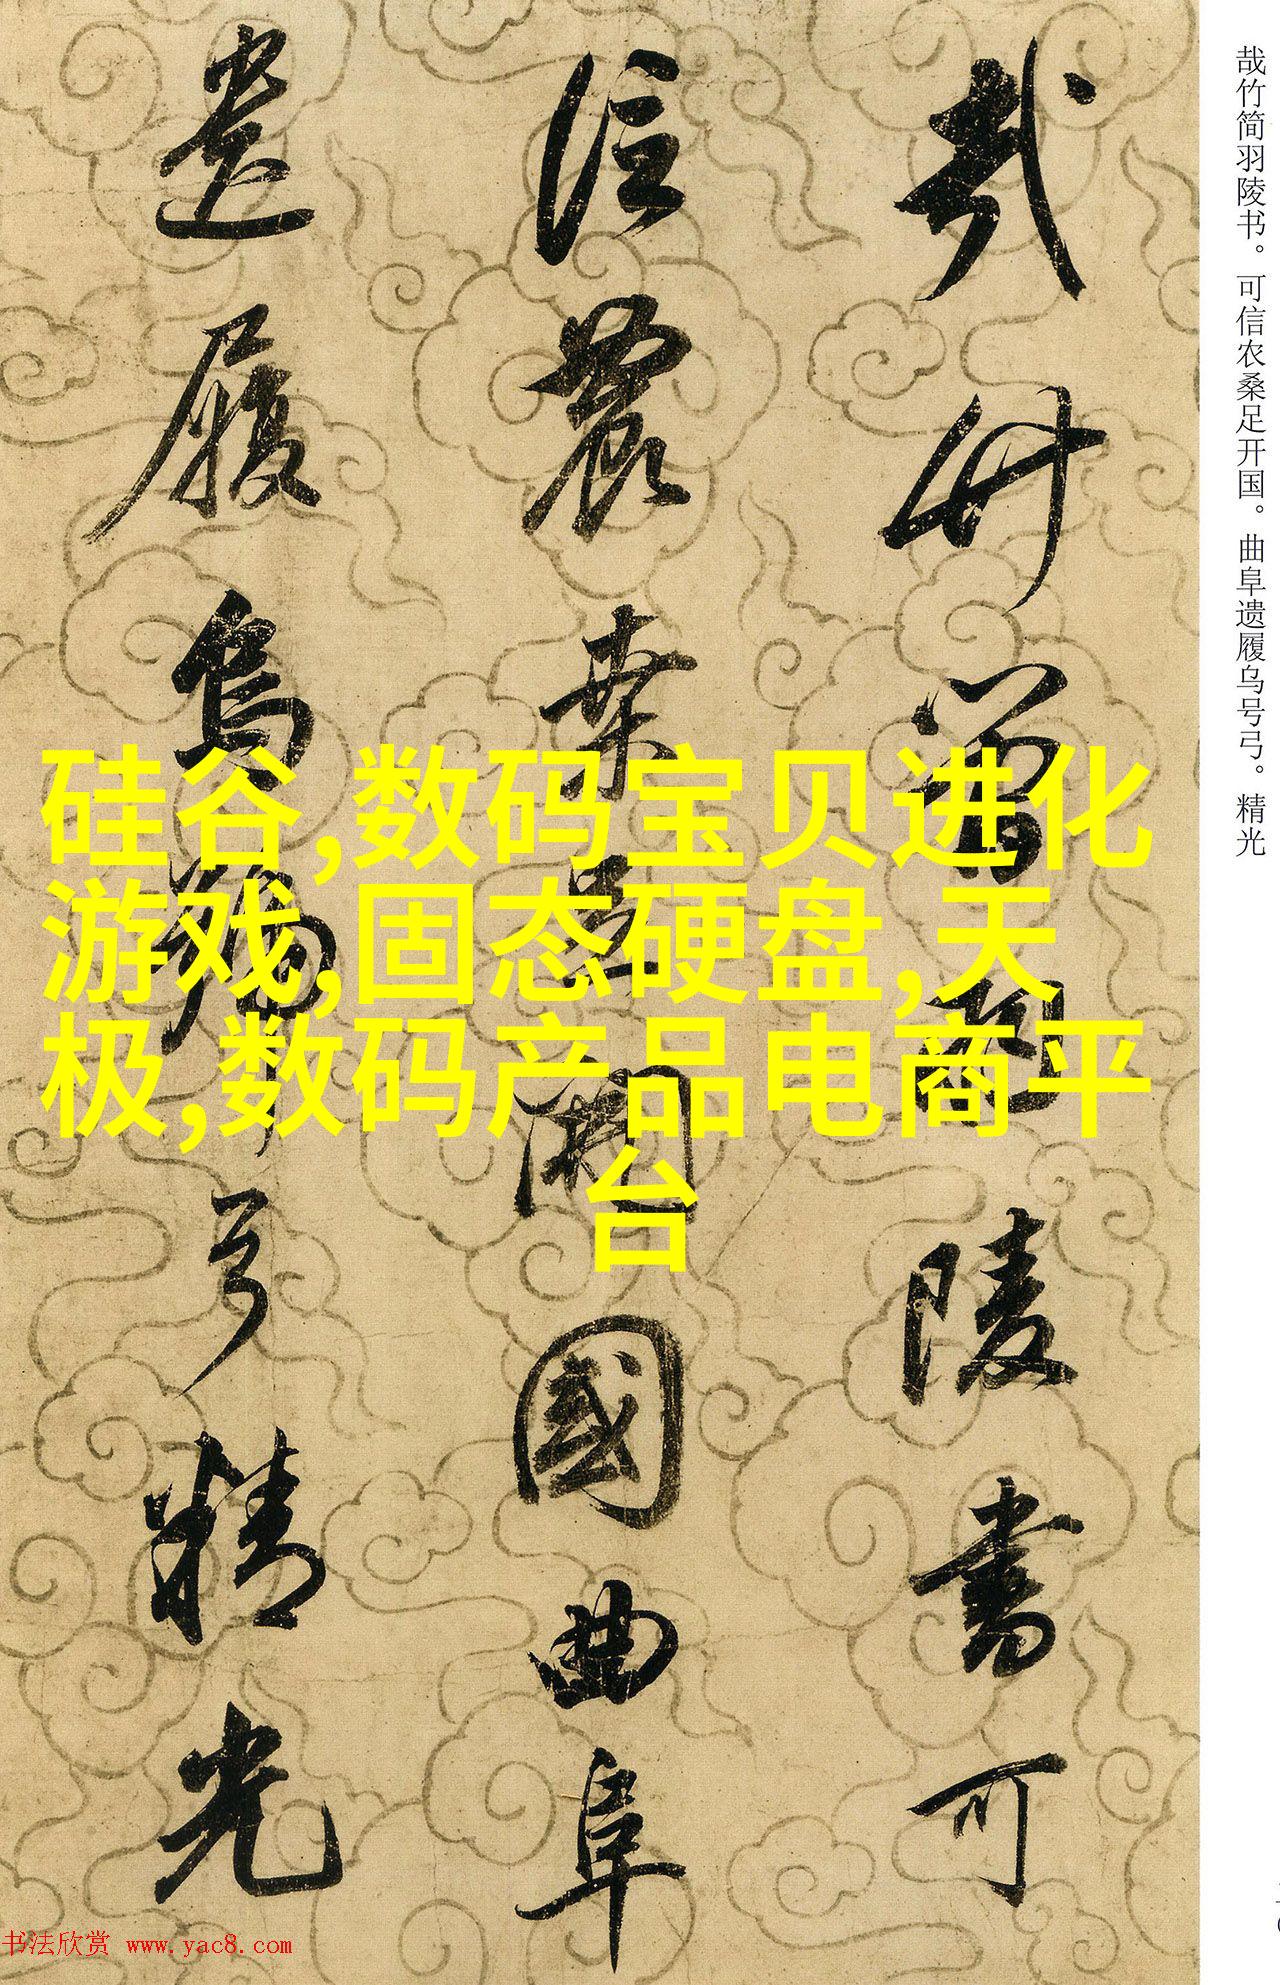 哉竹简羽陵书。可信农桑足开国。曲阜遗履乌号弓。精光
哉竹簡羽陵書可
信農桑足開國曲阜
遺履烏號弓精光
硅谷,数码宝贝进化
游戏,固态硬盘,天
极,数码产品电商平
台
书法欣赏 www.yac8.com